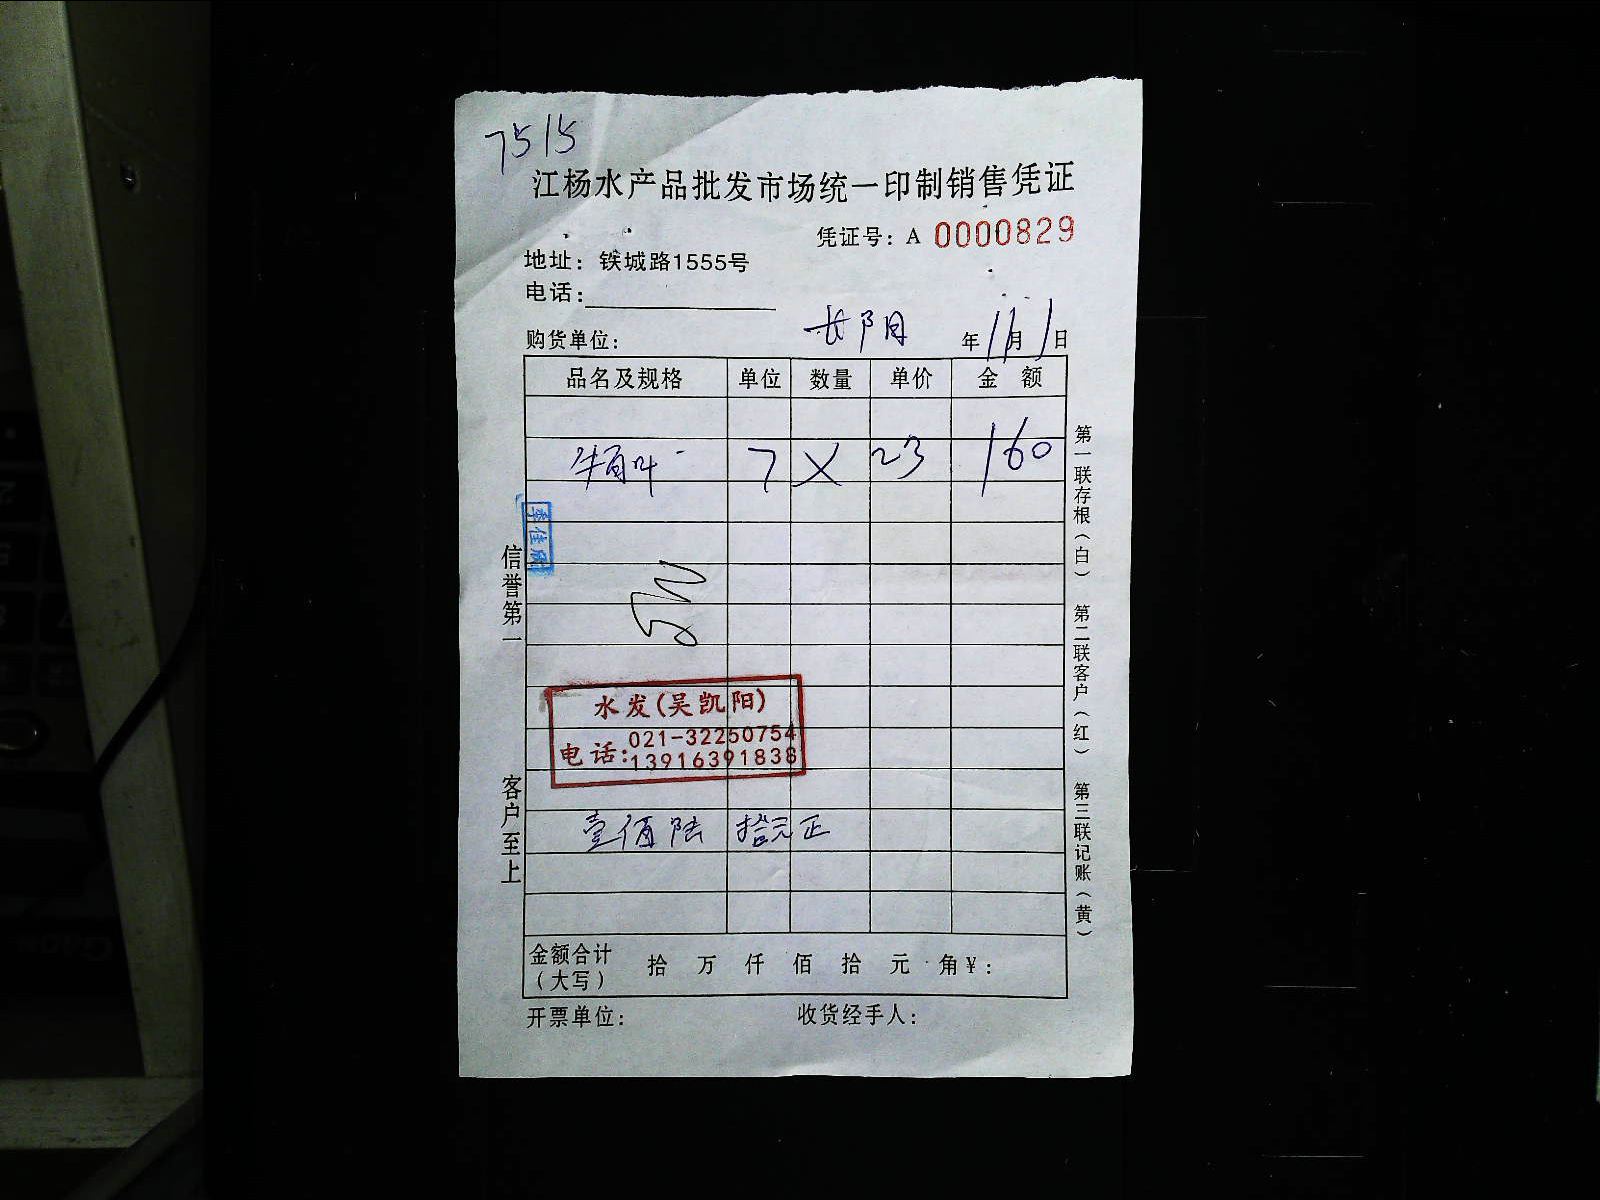 7515
江杨水产品批发市场统一印制销售凭证
凭证号：A 0000829
地址：铁城路1555号
电话：
购货单位： 长阳 年11月1日
品名及规格 单位 数量 单价 金额
牛百叶 7 X 23 160
李佳欣
水发(吴凯阳)
电话:021-32250754
13916391838
壹佰陆拾元正
金额合计（大写） 拾 万 仟 佰 拾 元 角¥：
开票单位： 收货经手人：
信誉第一 客户至上
第一联存根（白） 第二联客户（红） 第三联记账（黄）